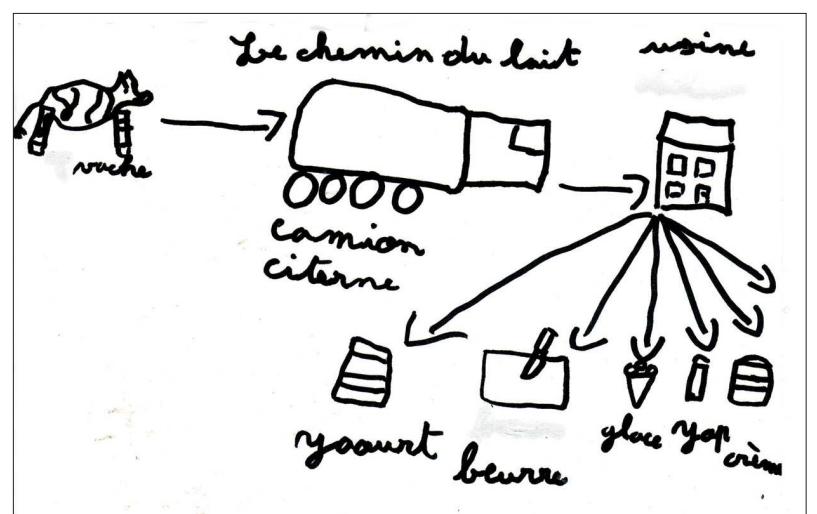 Le chemin du lait
usine
vache
camion
citerne
yaourt
beurre
glace
Yop
crème